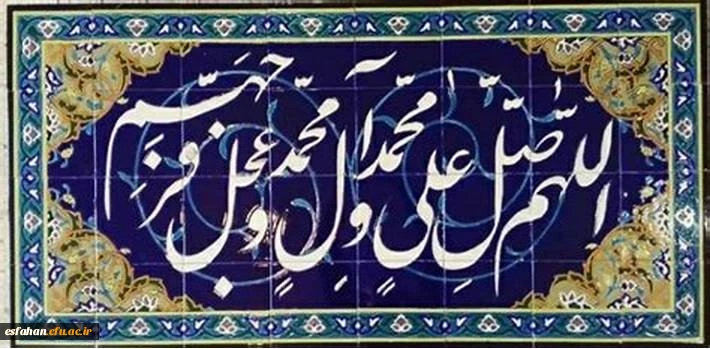 اللّٰهم صلّ علی محمّد وآلِ محمّدٍ وعجّل فرجهم
esfahan.cfu.ac.ir